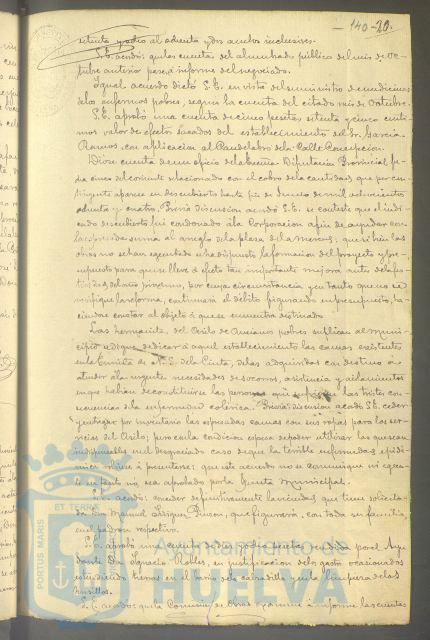 140-20.
setenta y ocho al ochenta y dos ambos inclusives.
S.E. acordó: que las cuentas del alumbrado público del mes de Oc-
tubre anterior pase á informe del negociado.
Igual acuerdo dictó S.E. en vista del suministro de medicinas
á los enfermos pobres, según la cuenta del citado mes de Octubre.
S.E. aprobó una cuenta de cinco pesetas setenta y cinco cénti-
mos valor de efectos sacados del establecimiento del Sr. García
Ramos, con aplicación al Candelabro de la Calle Concepción.
Dióse cuenta de un oficio de la Excma Diputación Provincial fe-
cha cinco del corriente relacionado con el cobro de las cantidades que por con-
tingente aparece en descubierto hasta fin de Junio de mil ochocientos
ochenta y cuatro. Previa discusión acordó S.E. se conteste que el indi-
cado descubierto fué condonado á la Corporación á fin de ayudar con
la expresada suma al arreglo de la plaza de la Merced, que si bien las
obras no se han ejecutado se ha dispuesto la formación del proyecto y pre-
supuesto para que se lleve á efecto tan importante mejora antes de las fies-
tas del año próximo, por cuya circunstancia y en tanto que no se
continuará el débito figurando en presupuesto, ha-
ciéndose constar al objeto á que se encuentra destinado.
Las hermanitas del Asilo de Ancianos pobres suplican al Muni-
cipio se digne dedicar á aquel establecimiento las camas existentes
en la Ermita de N.S. de la Cinta, de las adquiridas con destino á
atender á las urgentes necesidades de socorros, asistencia y aislamientos
en que habían de constituirse las personas que las tristes con-
secuencias de la enfermedad colérica. Previa discusión acordó S.E. ceder
y entregar por inventario las expresadas camas con sus ropas para los ser-
vicios del Asilo; pero con la condición expresa de poder utilizar las que sean
indispensables en el desgraciado caso de que la terrible enfermedad epidé-
mica volviese á presentarse; que este acuerdo no se comunique ni
en tanto no sea aprobado por la Junta Municipal.
S.E. acordó: conceder definitivamente la vecindad que tiene solicita-
da Don Manuel que figurará con toda su familia
en el padrón respectivo.
S.E. aprobó una cuenta de pesetas rendida por el Ayu-
dante Don Ignacio Robles, en justificación de los gastos ocasionados
tierras en el barrio de la Calzadilla y en la limpieza de los
husillos.
S.E. acordó: que la Comisión de Obras examine é informe las cuentas
PORTUS MARIS
ET TERRÆ
Ayuntamiento de
HUELVA